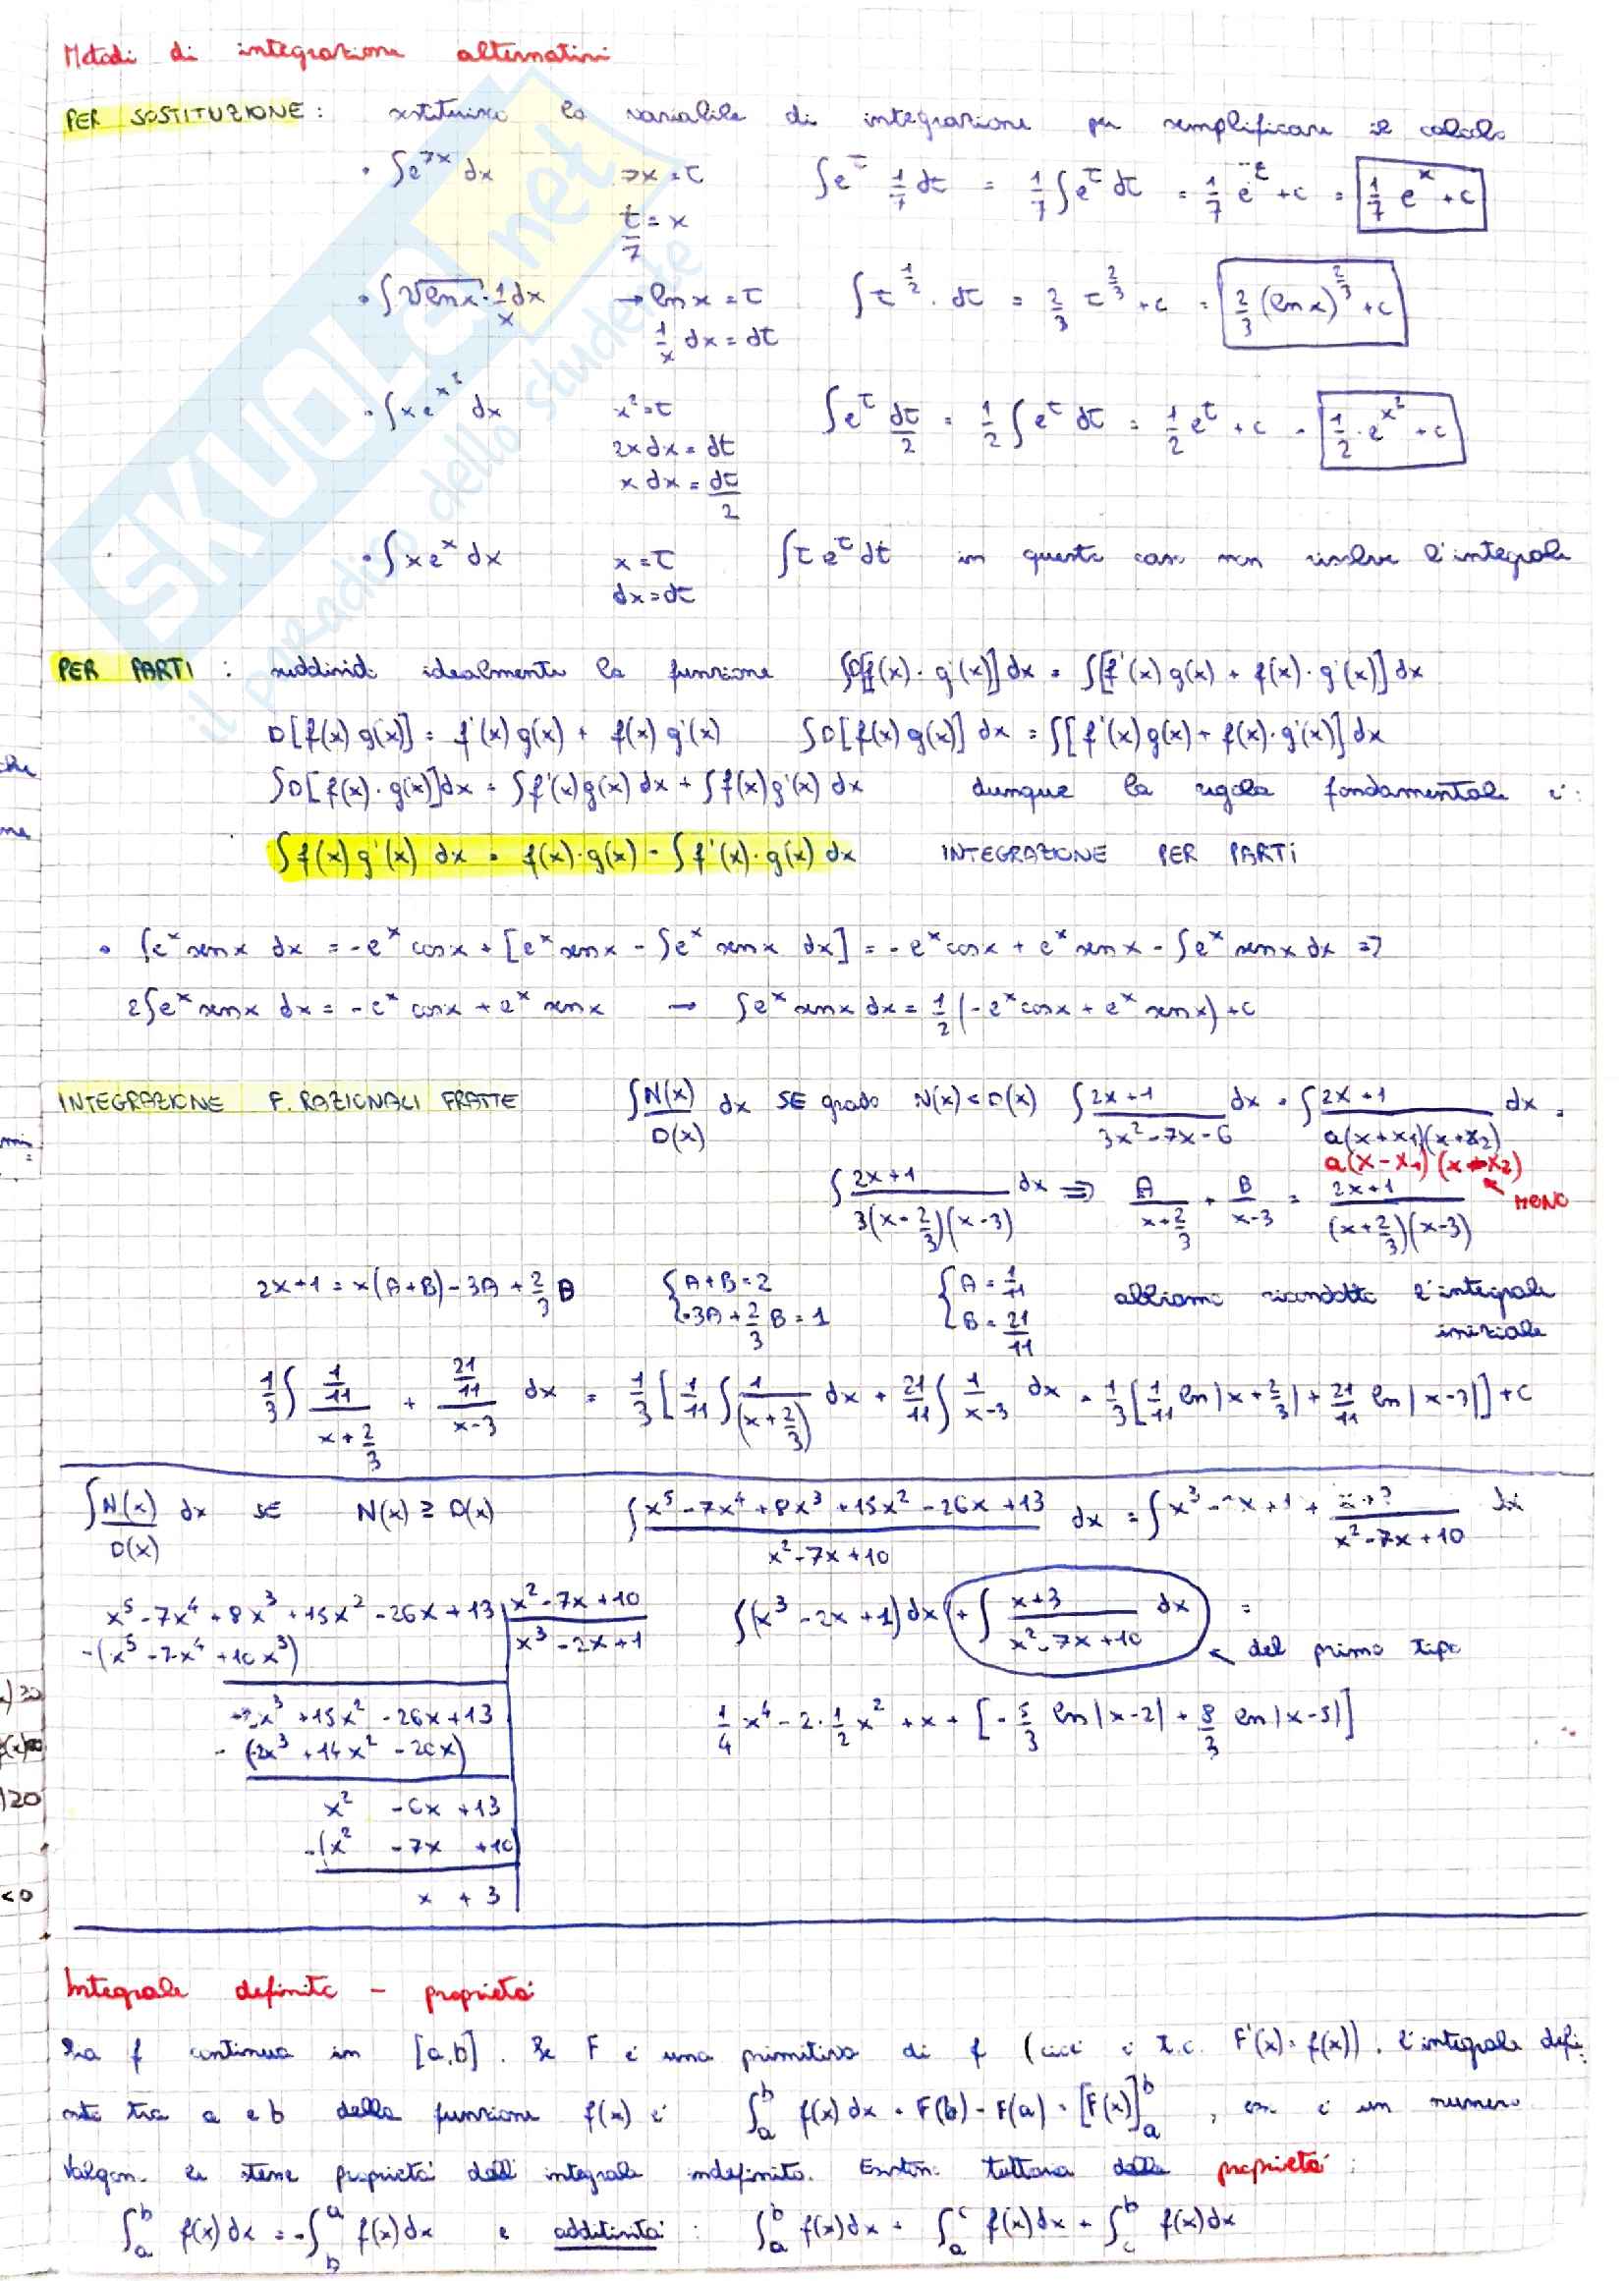 Metodi di integrazione alternativi
PER SOSTITUZIONE: sostituisco la variabile di integrazione per semplificare il calcolo
• ∫e^{7x} dx 7x = t ∫e^t 1/7 dt = 1/7 ∫e^t dt = 1/7 e^t + c = 1/7 e^x + c
t/7 = x
• ∫√ln x · 1/x dx → ln x = t ∫t^{1/2} · dt = 2/3 t^{2/3} + c = 2/3 (ln x)^{2/3} + c
1/x dx = dt
• ∫x e^{x²} dx x² = t ∫e^t dt/2 = 1/2 ∫e^t dt = 1/2 e^t + c = 1/2 · e^{x²} + c
2x dx = dt
x dx = dt/2
• ∫x e^x dx x = t ∫t e^t dt in questo caso non risolve l'integrale
dx = dt
PER PARTI: suddivido idealmente la funzione ∫D[f(x) · g(x)] dx = ∫[f'(x) g(x) + f(x) · g'(x)] dx
D[f(x) g(x)] = f'(x) g(x) + f(x) g'(x) ∫D[f(x) g(x)] dx = ∫[f'(x) g(x) + f(x) · g'(x)] dx
∫D[f(x) · g(x)] dx = ∫f'(x) g(x) dx + ∫f(x) g'(x) dx dunque la regola fondamentale è:
∫f(x) g'(x) dx = f(x) · g(x) - ∫f'(x) · g(x) dx INTEGRAZIONE PER PARTI
• ∫e^x sen x dx = -e^x cos x + [e^x sen x - ∫e^x sen x dx] = -e^x cos x + e^x sen x - ∫e^x sen x dx =>
2∫e^x sen x dx = -e^x cos x + e^x sen x → ∫e^x sen x dx = 1/2 (-e^x cos x + e^x sen x) + c
INTEGRAZIONE F. RAZIONALI FRATTE ∫N(x)/D(x) dx SE grado N(x) < D(x) ∫(2x+1)/(3x²-7x-6) dx = ∫(2x+1)/(a(x+x₁)(x+x₂)) dx =
a(x-x₁)(x-x₂)
MENO
∫(2x+1)/(3(x+2/3)(x-3)) dx => A/(x+2/3) + B/(x-3) = (2x+1)/((x+2/3)(x-3))
2x+1 = x(A+B) - 3A + 2/3 B {A+B = 2 {A = 1/11 abbiamo ricondotto l'integrale
-3A + 2/3 B = 1 B = 21/11 iniziale
1/3 ∫ (1/11)/(x+2/3) + (21/11)/(x-3) dx = 1/3 [1/11 ∫ 1/(x+2/3) dx + 21/11 ∫ 1/(x-3) dx = 1/3 [1/11 ln|x+2/3| + 21/11 ln|x-3|] + c
∫N(x)/D(x) dx SE N(x) ≥ D(x) ∫(x⁵-7x⁴+8x³+15x²-26x+13)/(x²-7x+10) dx = ∫x³-2x+1 + (x+3)/(x²-7x+10) dx
x⁵-7x⁴+8x³+15x²-26x+13 | x²-7x+10 ∫(x³-2x+1) dx + ∫(x+3)/(x²-7x+10) dx =
-(x⁵-7x⁴+10x³) x³-2x+1 ← del primo tipo
-2x³+15x²-26x+13 1/4 x⁴ - 2·1/2 x² + x + [-5/3 ln|x-2| + 8/3 ln|x-5|]
-(-2x³+14x²-20x)
x² -6x +13
-(x² -7x +10)
x + 3
Integrale definito - proprietà
Sia f continua in [a,b]. Se F è una primitiva di f (cioè è t.c. F'(x) = f(x)), l'integrale defi-
nito tra a e b della funzione f(x) è ∫_a^b f(x) dx = F(b) - F(a) = [F(x)]_a^b, è un numero
Valgono le stesse proprietà dell' integrale indefinito. Esistono tuttavia delle proprietà:
∫_a^b f(x) dx = -∫_b^a f(x) dx e additività: ∫_a^b f(x) dx = ∫_a^c f(x) dx + ∫_c^b f(x) dx
SKUOLA.net
il paradiso dello studente